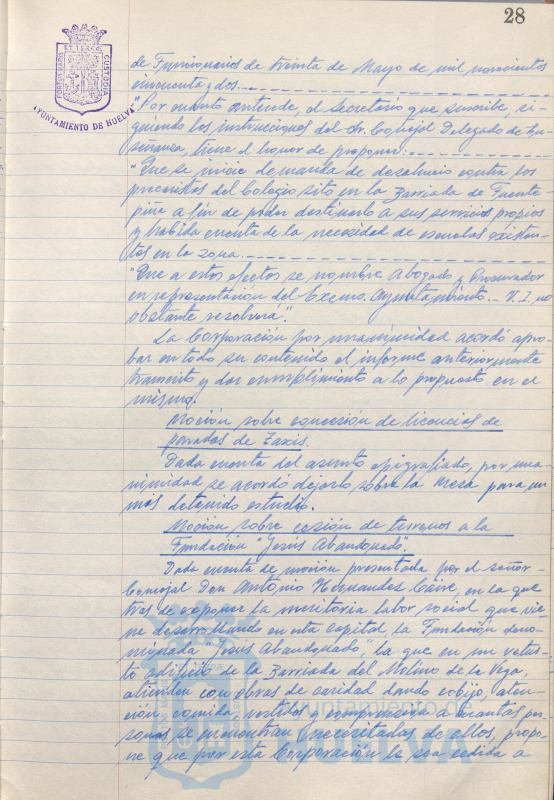 28
PORTUS MARIS ET TERRE CUSTODIA
AYUNTAMIENTO DE HUELVA
de Funcionarios de treinta de Mayo de mil novecientos
cincuenta y dos.
"Por cuanto antecede, el Secretario que suscribe, si-
guiendo las instrucciones del Sr. Concejal Delegado de En-
señanza, tiene el honor de proponer:
"Que se inicie demanda de desahucio contra los
precaristas del Colegio sito en la Barriada de Fuente
piña a fin de poder destinarlo a sus servicios propios
y habida cuenta de la necesidad de escuelas existen-
tes en la zona.
"Que a estos efectos se nombre Abogado y Procurador
en representación del Excmo. Ayuntamiento.- V.I. no
obstante resolverá".
La Corporación por unanimidad acordó apro-
bar en todo su contenido el informe anteriormente
transcrito y dar cumplimiento a lo propuesto en el
mismo.
Moción sobre concesión de licencias de
paradas de Taxis.
Dada cuenta del asunto epigrafiado, por una-
nimidad se acordó dejarlo sobre la mesa para un
más detenido estudio.
Moción sobre cesión de terrenos a la
Fundación "Jesús Abandonado".
Dada cuenta de moción presentada por el señor
Concejal Don Antonio Hernandez en la que
tras de exponer la meritoria labor social que vie-
ne desarrollando en esta capital, la Fundación deno-
minada "Jesús Abandonado", la que en un vetus-
to edificio de la Barriada del Molino de la Vega,
atienden con obras de caridad dando cobijo, aten-
ción, comida, vestidos y comprensión a cuantas per-
sonas se encuentran necesitadas de ellos, propo-
ne que por esta Corporación le sea cedida a
Ayuntamiento de
HUELVA